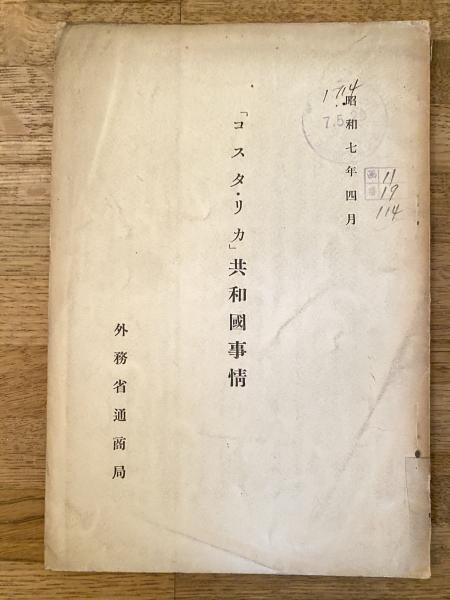 昭和七年四月
「コスタ・リカ」共和國事情
外務省通商局
7.5.
11
19
114